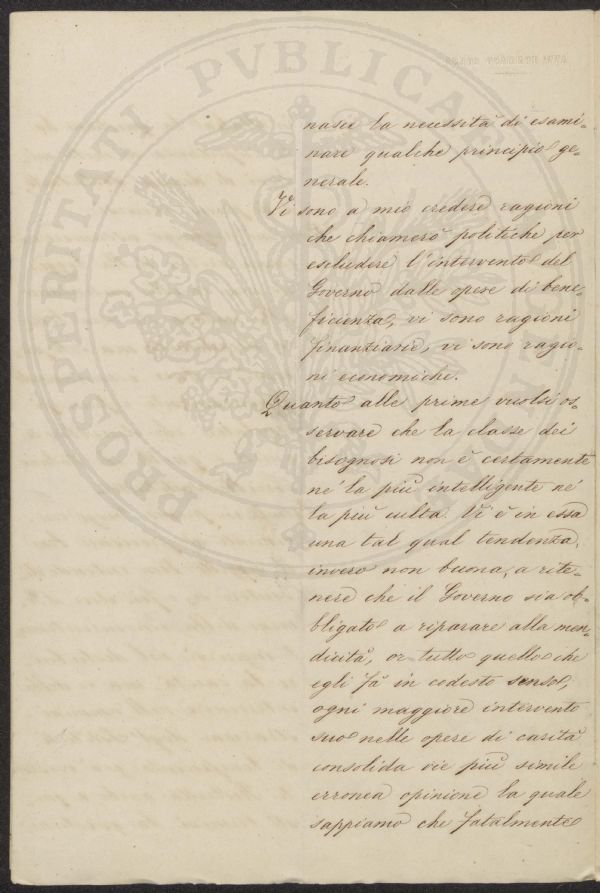 nasce la necessità di esami-
nare qualche principio ge-
nerale.
Vi sono a mio credere ragioni
che chiamerò politiche per
escludere l'intervento del
Governo dalle opere di bene-
ficienza, vi sono ragioni
finanziarie, vi sono ragio-
ni economiche.
Quanto alle prime vuolsi os-
servare che la classe dei
bisognosi non è certamente
nè la più intelligente nè
la più culta. Vi è in essa
una tal qual tendenza,
invero non buona, a rite-
nere che il Governo sia ob-
bligato a riparare alla men-
dicità, or tutto quello che
egli fà in codesto senso,
ogni maggiore intervento
suo nelle opere di carità
consolida vie più simile
erronea opinione la quale
sappiamo che fatalmente
PROSPERITATI PVBLICAE